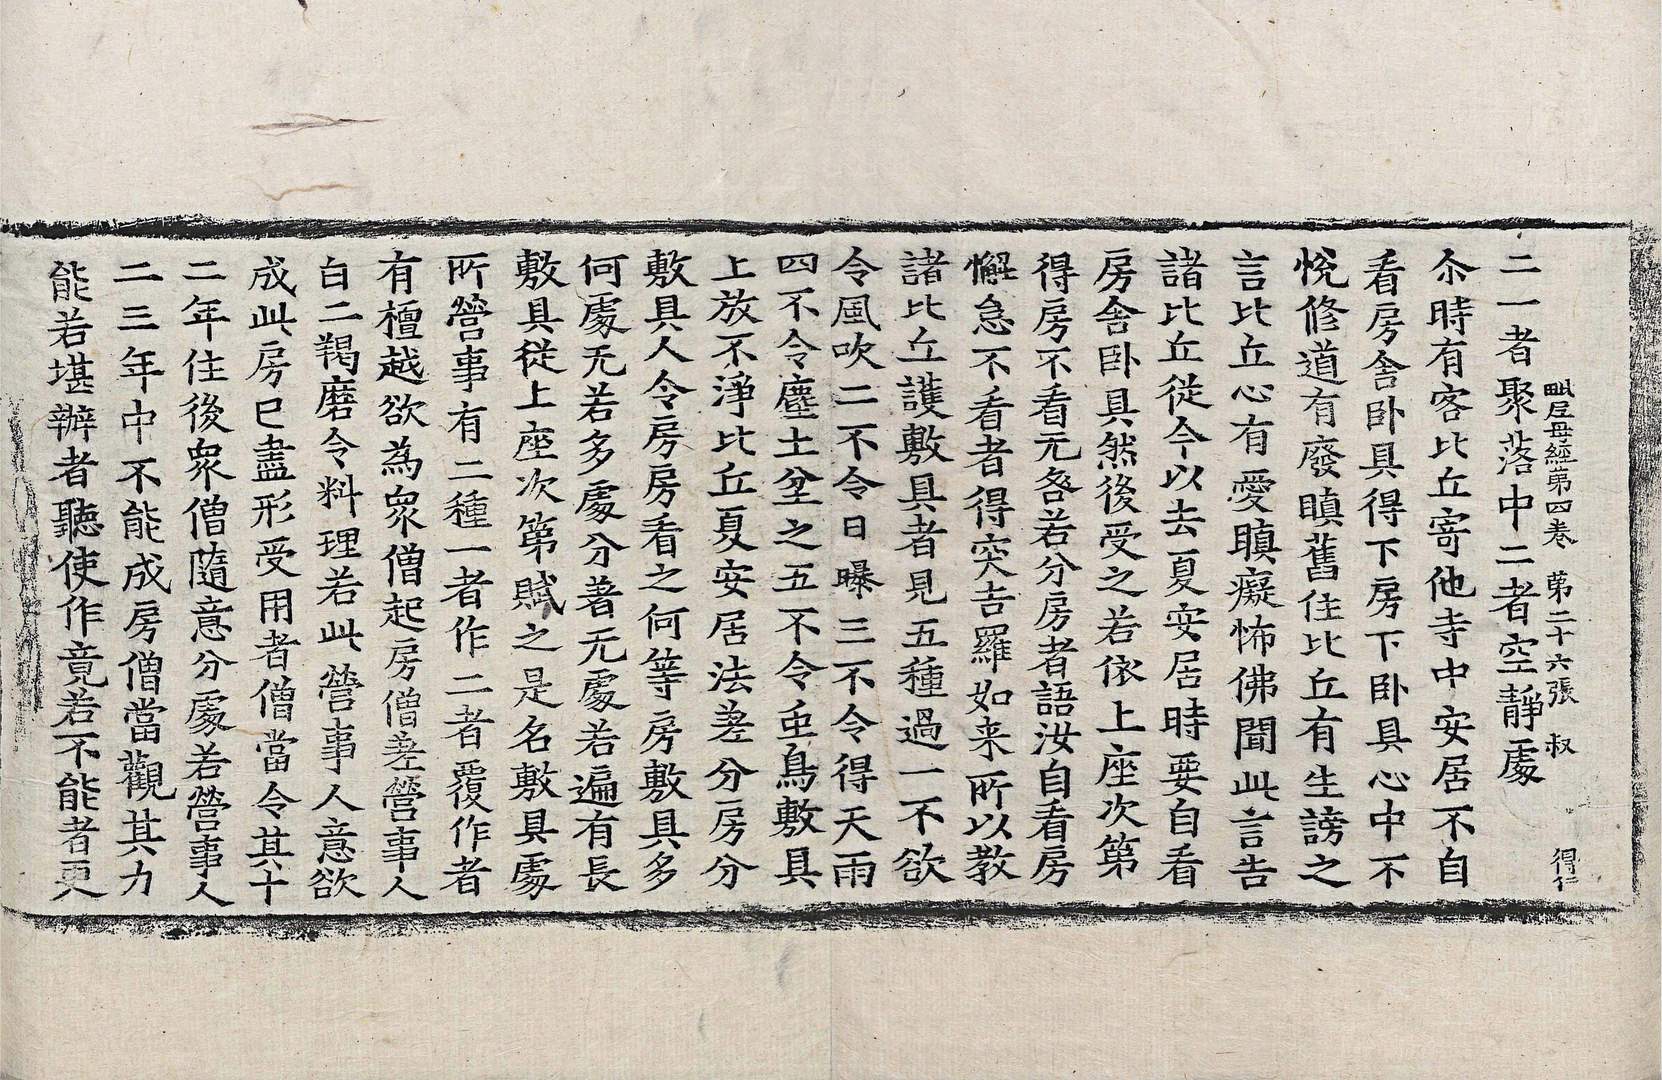 毗尼母經第四卷 第二十六張 叔 得仁
二一者聚落中二者空靜處
尒時有客比丘寄他寺中安居不自
看房舍卧具得下房下卧具心中不
悅修道有廢瞋舊住比丘有生謗之
言比丘心有愛瞋癡怖佛聞此言告
諸比丘從今以去夏安居時要自看
房舍卧具然後受之若依上座次第
得房不看无咎若分房者語汝自看房
懈怠不看者得突吉羅如来所以教
諸比丘護敷具者見五種過一不欲
令風吹二不令日曝三不令得天雨
四不令塵土坌之五不令䖝鳥敷具
上放不淨比丘夏安居法差分房分
敷具人令房房看之何等房敷具多
何處无若多處分著无處若遍有長
敷具從上座次第賦之是名敷具處
所營事有二種一者作二者覆作者
有檀越欲為衆僧起房僧差營事人
白二羯磨令料理若此營事人意欲
成此房已盡形受用者僧當令其十
二年住後衆僧隨意分處若營事人
二三年中不能成房僧當觀其力
能若堪辦者聽使作竟若不能者更